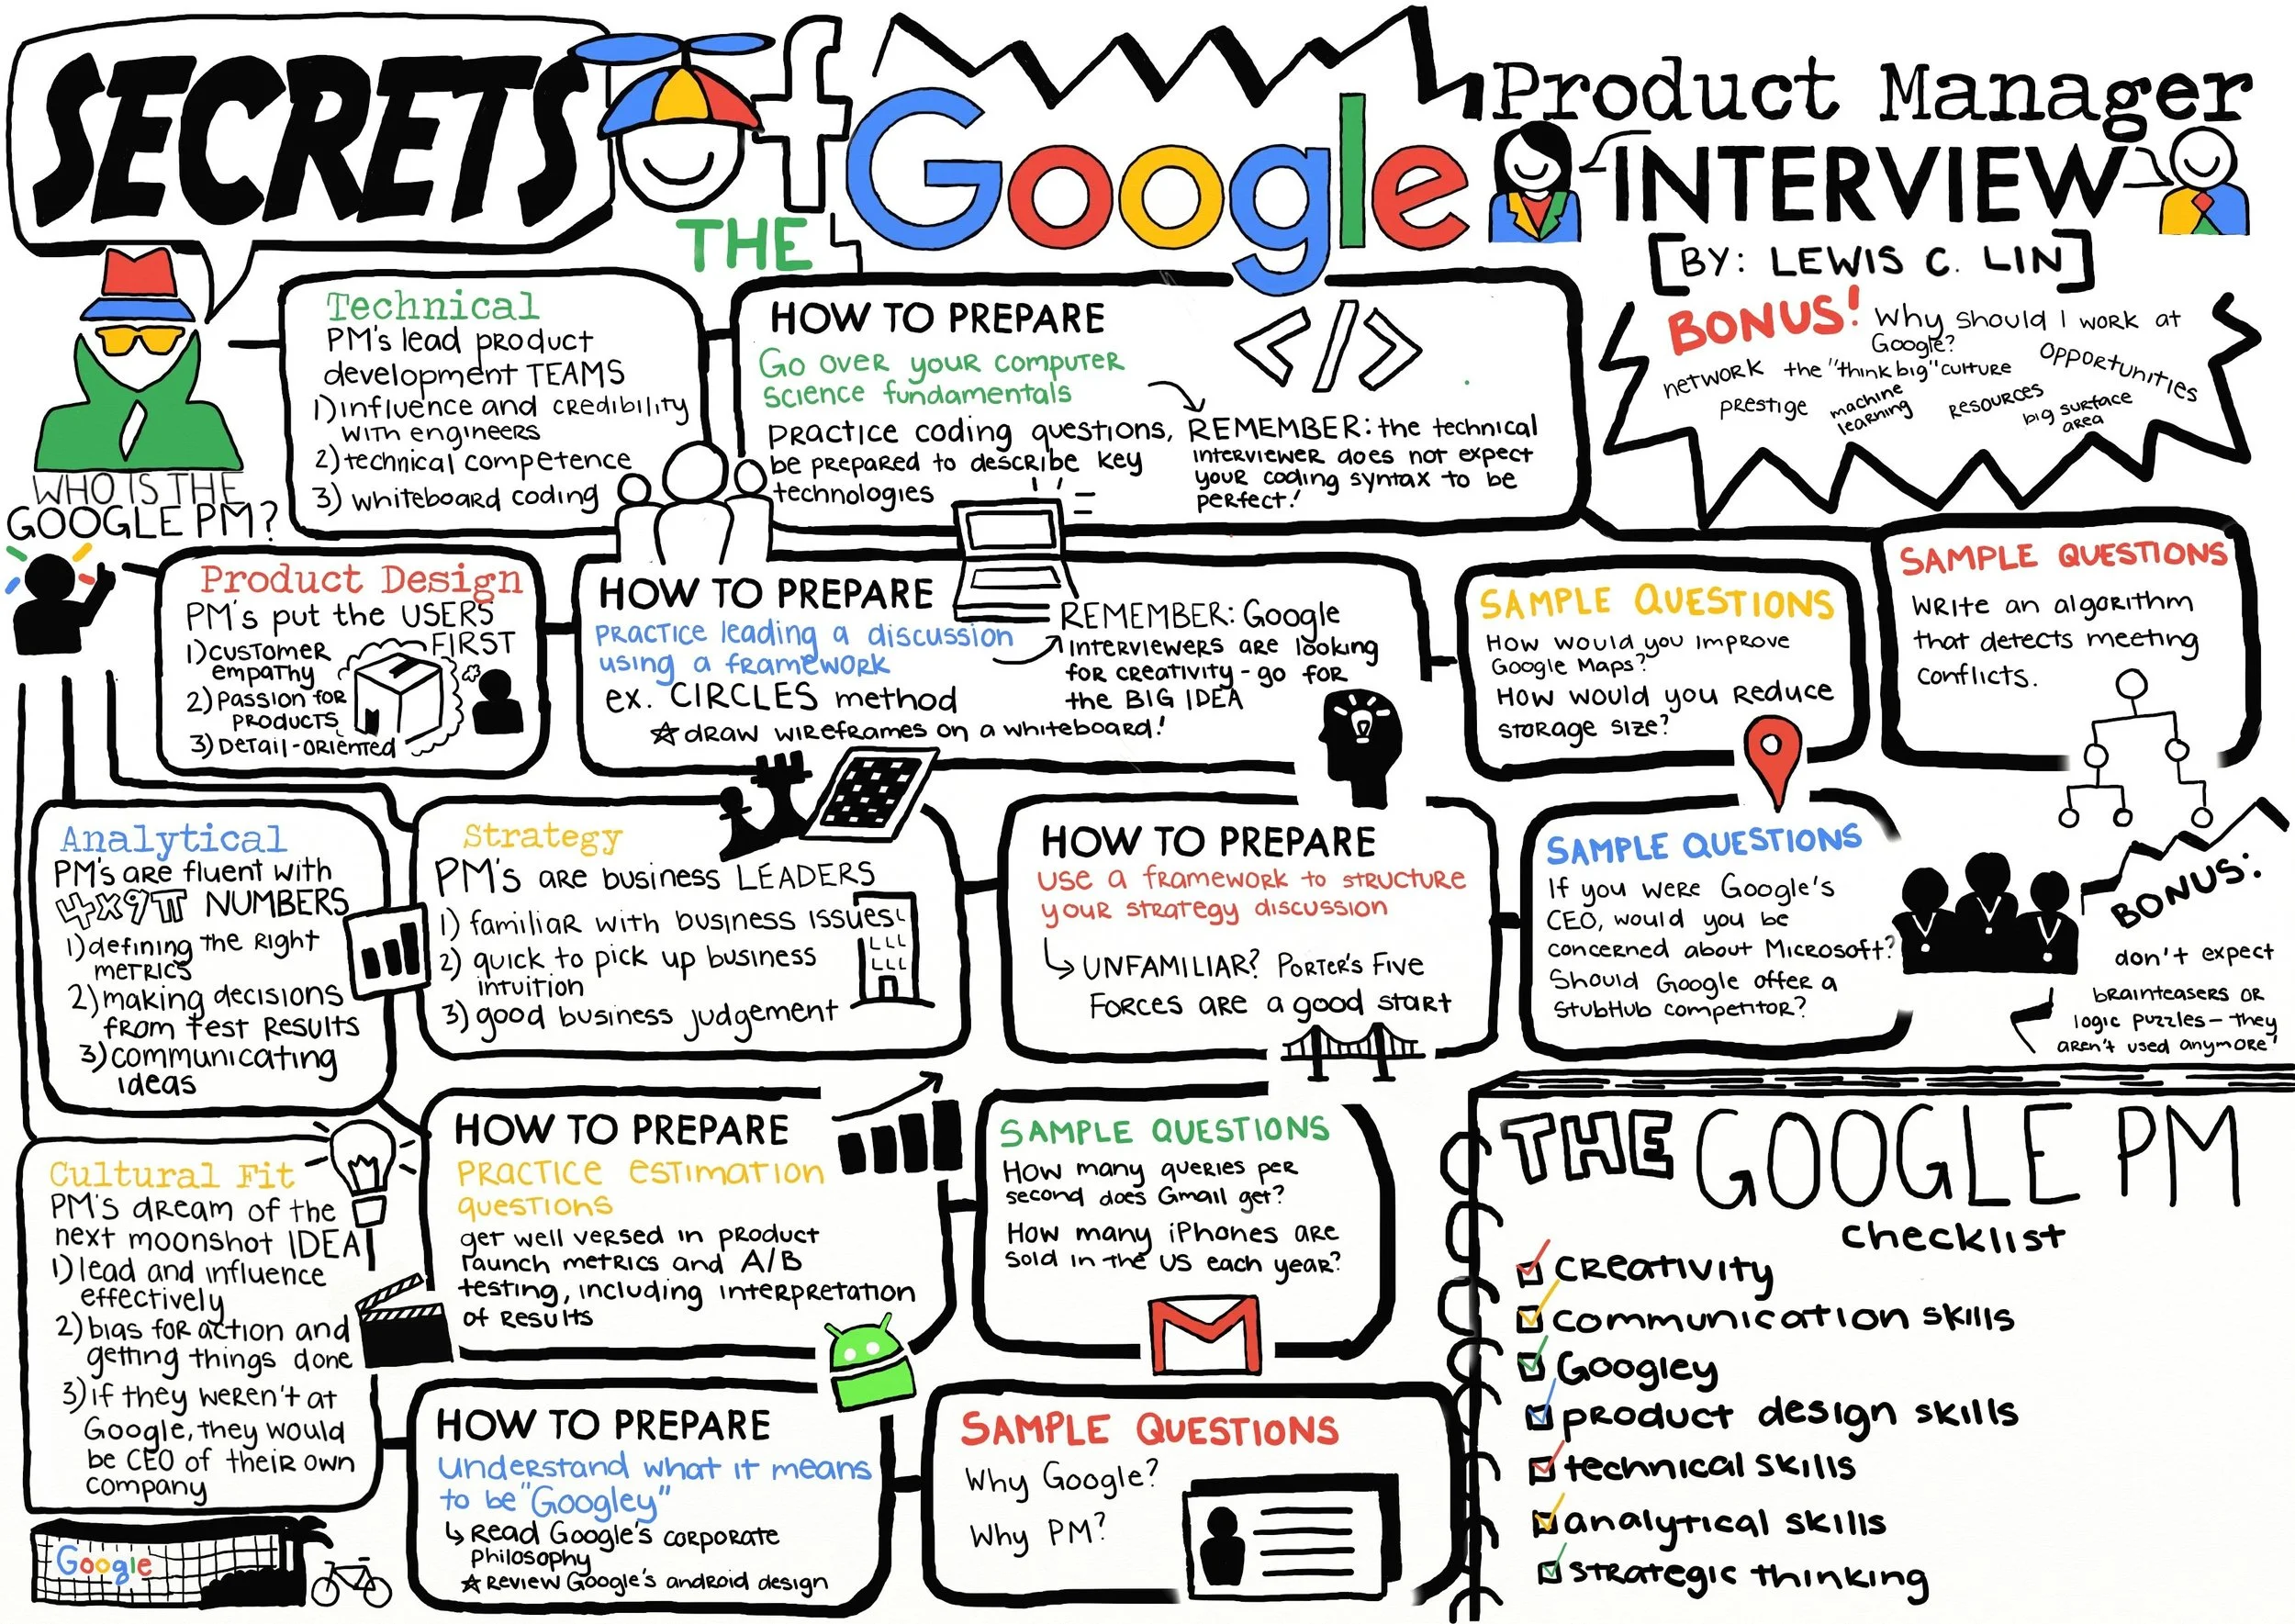 SECRETS of
THE
Google
Product Manager
INTERVIEW
[BY: LEWIS C. LIN]
BONUS! Why should I work at
Google?
network the "think big" culture opportunities
prestige machine
learning
resources big surface
area
WHO IS THE
GOOGLE PM?
Technical
PM's lead product
development TEAMS
1) influence and credibility
with engineers
2) technical competence
3) whiteboard coding
HOW TO PREPARE
Go over your computer
science fundamentals
practice coding questions,
be prepared to describe key
technologies
</>
REMEMBER: the technical
interviewer does not expect
your coding syntax to be
perfect!
SAMPLE QUESTIONS
Write an algorithm
that detects meeting
conflicts.
Product Design
PM's put the USERS
FIRST
1) customer
empathy
2) passion for
products
3) detail-oriented
HOW TO PREPARE
practice leading a discussion
using a framework
ex. CIRCLES method
☆ draw wireframes on a whiteboard!
REMEMBER: Google
interviewers are looking
for creativity - go for
the BIG IDEA
SAMPLE QUESTIONS
How would you improve
Google Maps?
How would you reduce
storage size?
Analytical
PM's are fluent with
4x9π NUMBERS
1) defining the right
metrics
2) making decisions
from test results
3) communicating
ideas
Strategy
PM's are business LEADERS
1) familiar with business issues
2) quick to pick up business
intuition
3) good business judgement
HOW TO PREPARE
use a framework to structure
your strategy discussion
↳ UNFAMILIAR? Porter's Five
Forces are a good start
SAMPLE QUESTIONS
If you were Google's
CEO, would you be
concerned about Microsoft?
Should Google offer a
StubHub competitor?
BONUS:
don't expect
brainteasers or
logic puzzles - they
aren't used anymore!
HOW TO PREPARE
practice estimation
questions
get well versed in product
launch metrics and A/B
testing, including interpretation
of results
SAMPLE QUESTIONS
How many queries per
second does Gmail get?
How many iPhones are
sold in the US each year?
Cultural Fit
PM's dream of the
next moonshot IDEA
1) lead and influence
effectively
2) bias for action and
getting things done
3) if they weren't at
Google, they would
be CEO of their own
company
Google
HOW TO PREPARE
understand what it means
to be "Googley"
↳ Read Google's corporate
philosophy
☆ Review Google's android design
SAMPLE QUESTIONS
Why Google?
Why PM?
THE GOOGLE PM
checklist
creativity
communication skills
Googley
product design skills
technical skills
analytical skills
strategic thinking